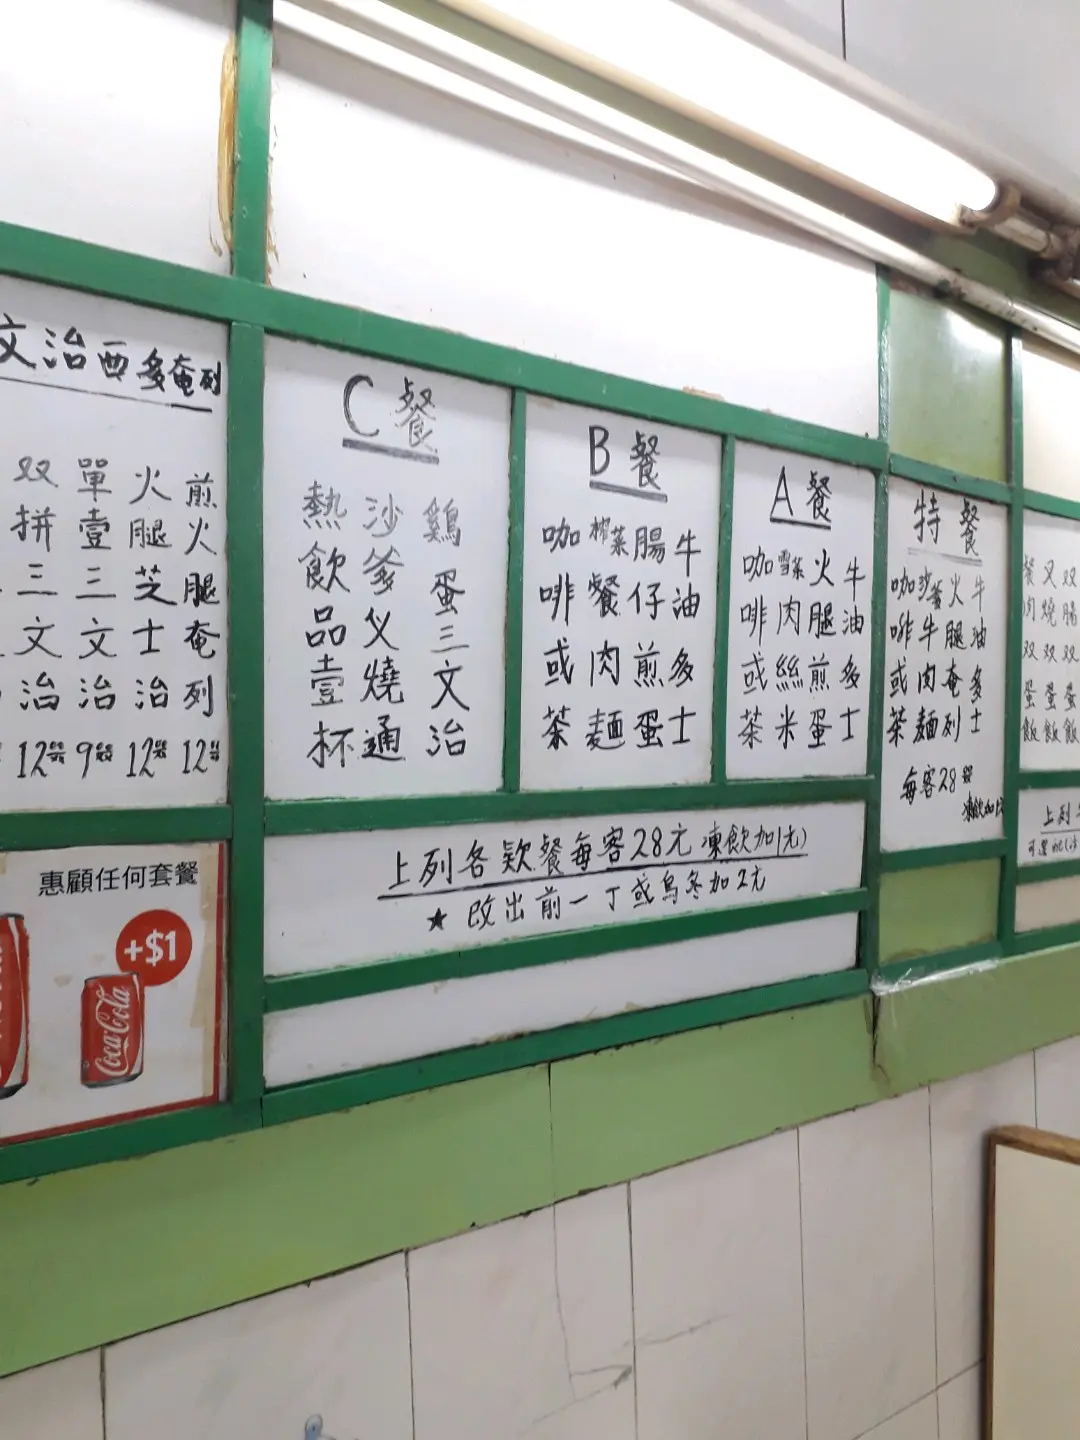 文治西多奄列
煎火腿奄列 12元
火腿芝士治 12元
單壹三文治 9元
双拼三文治 12元
惠顧任何套餐
+$1
Coca-Cola
C餐
鷄蛋三文治
沙爹义燒通
熱飲品壹杯
B餐
牛油多士
腸仔煎蛋
榨菜餐肉麵
咖啡或茶
A餐
牛油多士
火腿煎蛋
雪菜肉絲米
咖啡或茶
上列各欵餐每客28元凍飲加1元)
★改出前一丁或烏冬加2元
特餐
牛油多士
火腿奄列
沙爹牛肉麵
咖啡或茶
每客28元
凍飲加1元
双腸双蛋飯
叉燒双蛋飯
餐肉双蛋飯
上列